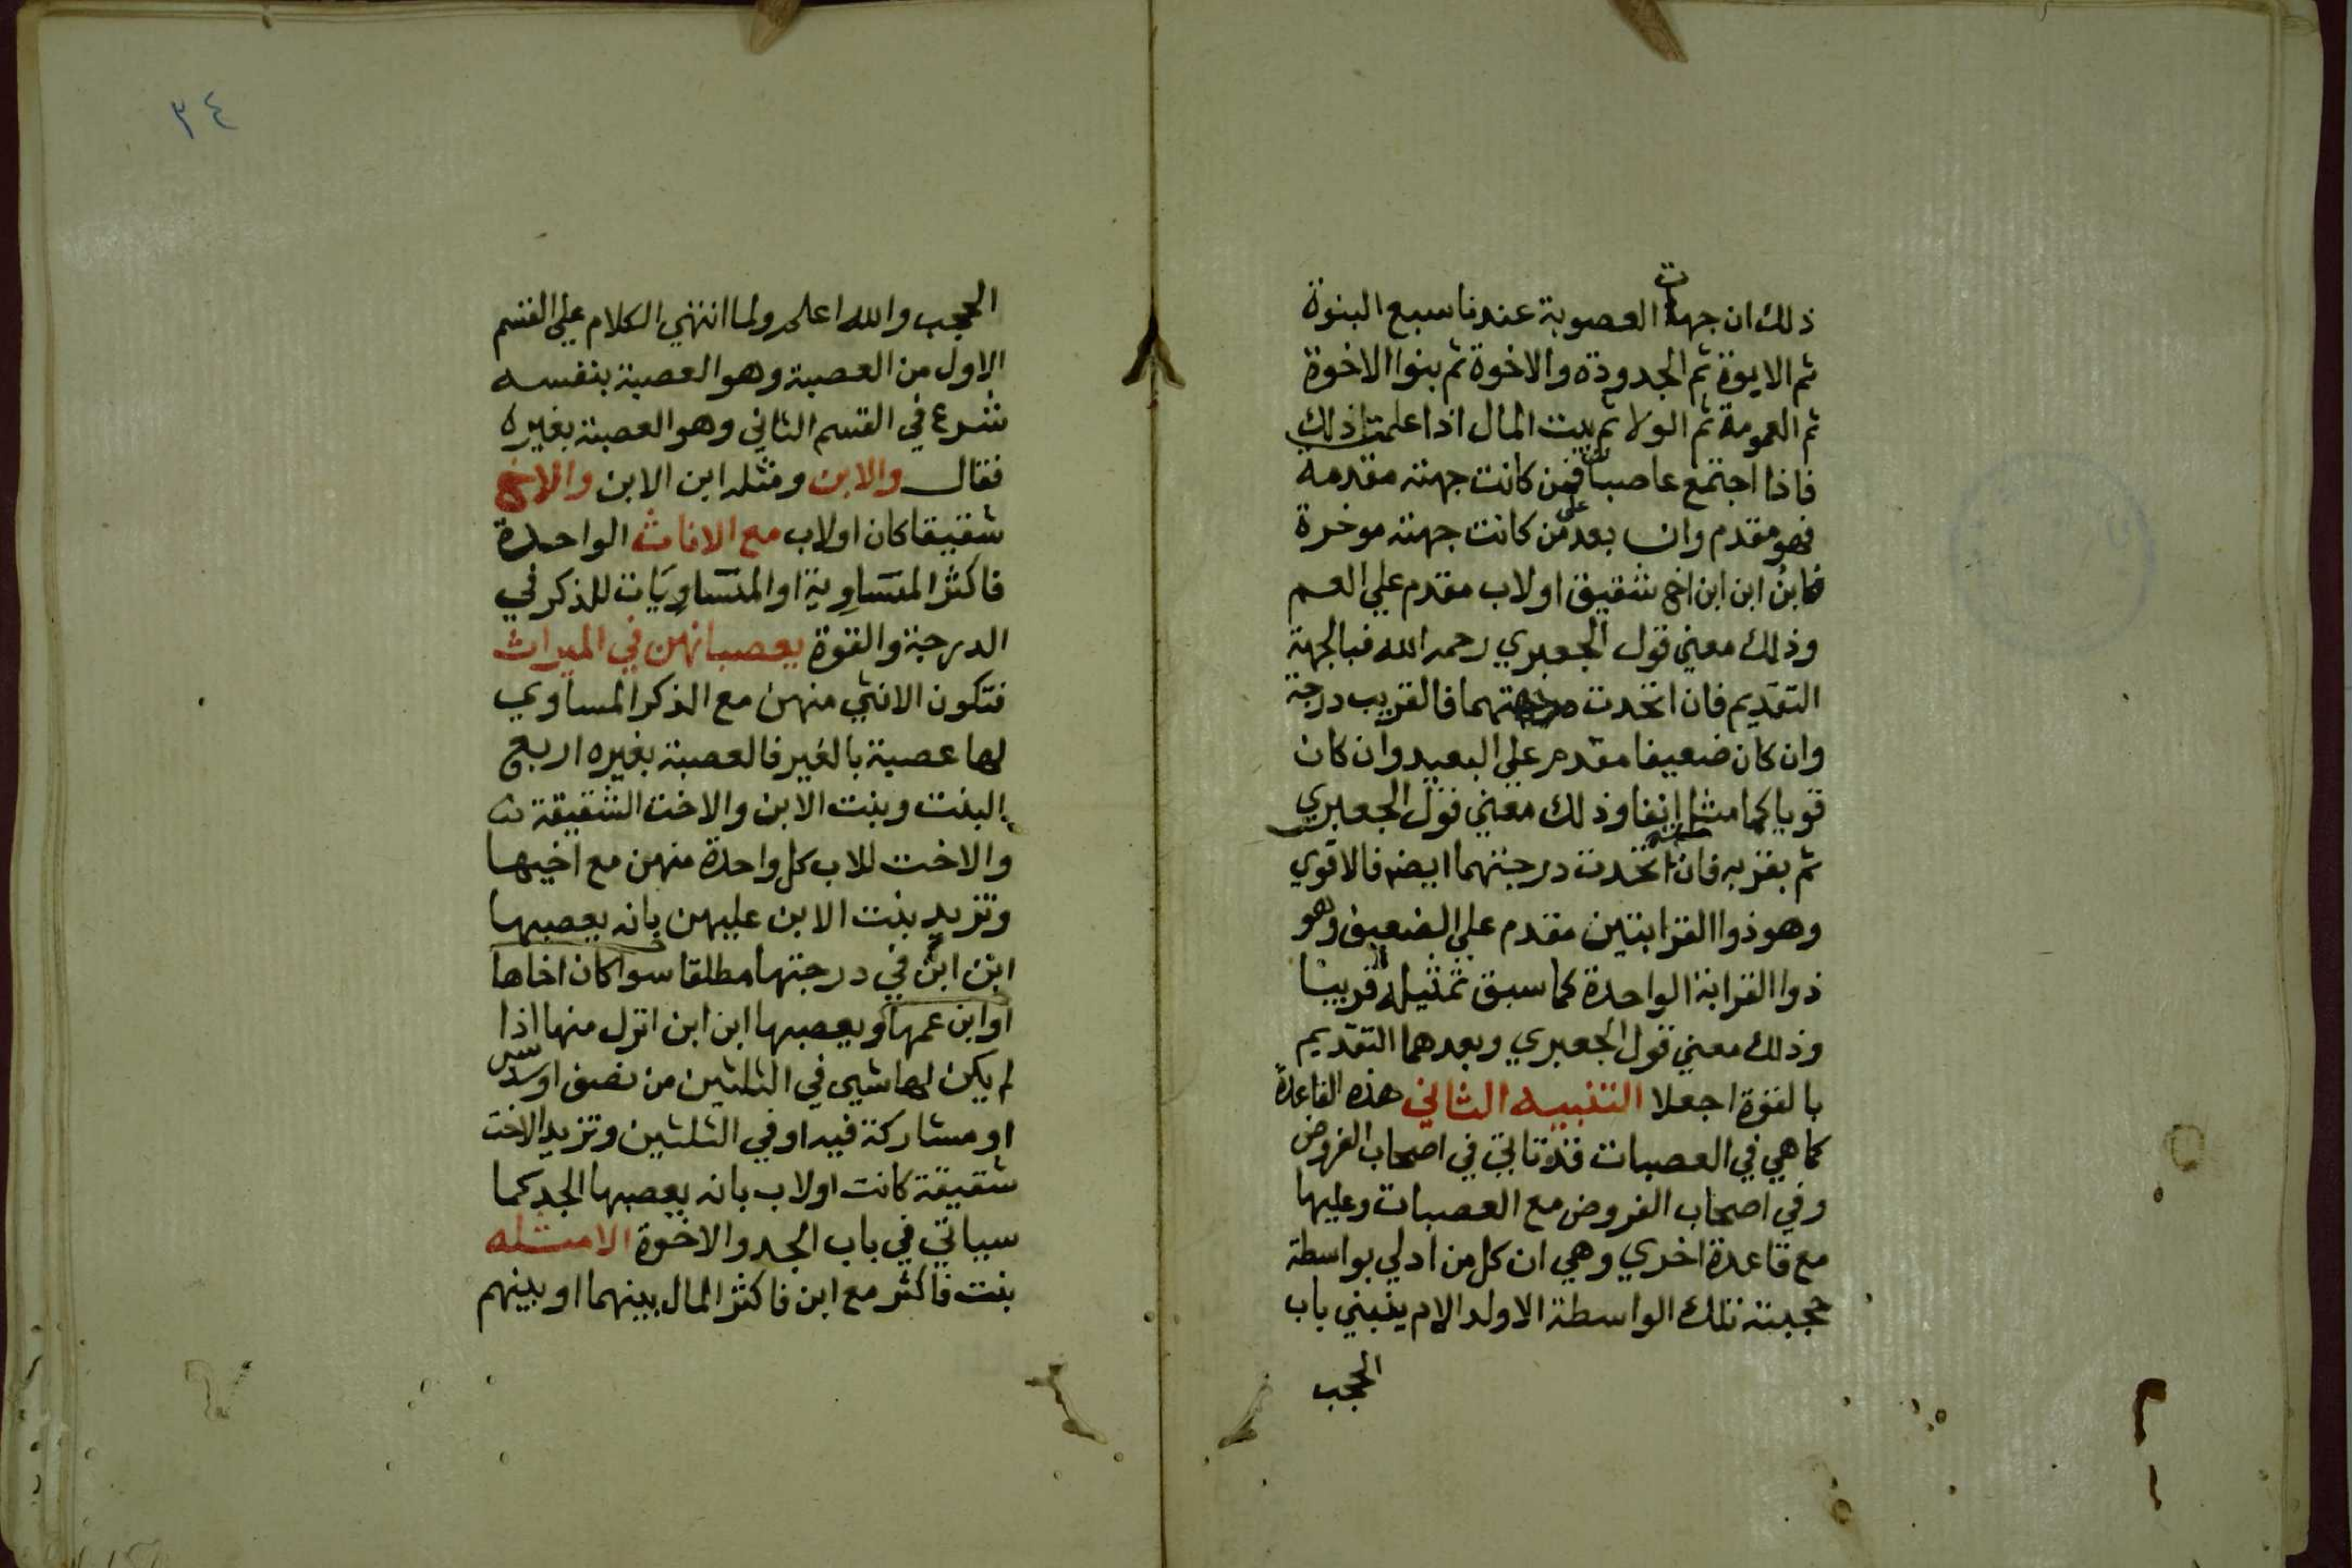 ذلك ان جهات العصوبة عندنا سبع البنوة
ثم الابوة ثم الجدودة والاخوة ثم بنوا الاخوة
ثم العمومة ثم الولا ثم بيت المال اذا علمت ذلك
فاذا اجتمع عاصبان فمن كانت جهته مقدمة
فهو مقدم وان بعد على من كانت جهته موخرة
فابن ابن ابن اخ شقيق او لاب مقدم علي العم
وذلك معني قول الجعبري رحمه الله فبالجهة
التقديم فان اتحدت جهتهما فالقريب درجة
وان كان ضعيفا مقدم علي البعيد وان كان
قويا كما مثل انفا وذلك معني قول الجعبري
ثم بقربه فان اتحدت درجتهما ايضا فالاقوي
وهو ذوا القرابتين مقدم علي الضعيف وهو
ذوا القرابة الواحدة كما سبق تمثيله قريبا
وذلك معني قول الجعبري وبعدهما التقديم
بالقوة اجعلا التنبيه الثاني هذه القاعدة
كما هي في العصبات قد تاتي في اصحاب الفروض
وفي اصحاب الفروض مع العصبات وعليها
مع قاعدة اخري وهي ان كل من ادلي بواسطة
حجبته تلك الواسطة الا ولد الام ينبني باب
الحجب
٣٤
الحجب والله اعلم ولما انتهي الكلام علي القسم
الاول من العصبة وهو العصبة بنفسه
شرع في القسم الثاني وهو العصبة بغيره
فقال والابن ومثله ابن الابن والاخ
شقيقا كان او لاب مع الاناث الواحدة
فاكثر المتساوية او المتساويات للذكر في
الدرجة والقوة يعصبانهن في الميراث
فتكون الانثي منهن مع الذكر المساوي
لها عصبة بالغير فالعصبة بغيره اربع
البنت وبنت الابن والاخت الشقيقة
والاخت للاب كل واحدة منهن مع اخيها
وتزيد بنت الابن عليهن بانه يعصبها
ابن ابن في درجتها مطلقا سوا كان اخاها
او ابن عمها ويعصبها ابن ابن انزل منها اذا
لم يكن لها شيي في الثلثين من نصف او سدس
او مشاركة فيه او في الثلثين وتزيد الاخت
شقيقة كانت او لاب بانه يعصبها الجد كما
سياتي في باب الجد والاخوة الامثله
بنت فاكثر مع ابن فاكثر المال بينهما او بينهم